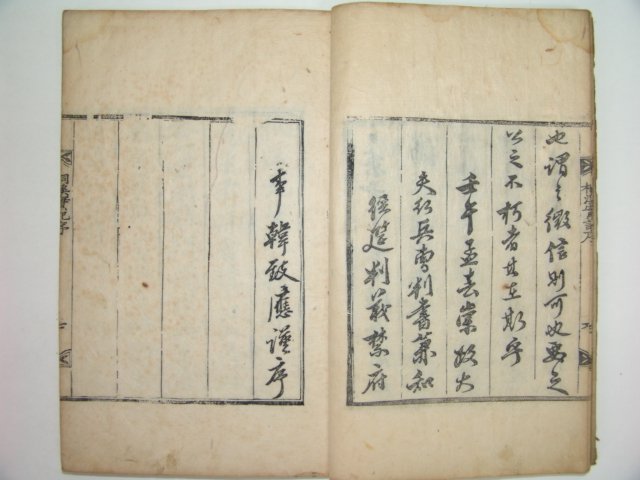 也謂之徵信則可也要之
公之不朽者其在斯乎
壬午孟春崇政大
夫行兵曹判書兼知
經筵判義禁府
事韓致應謹序